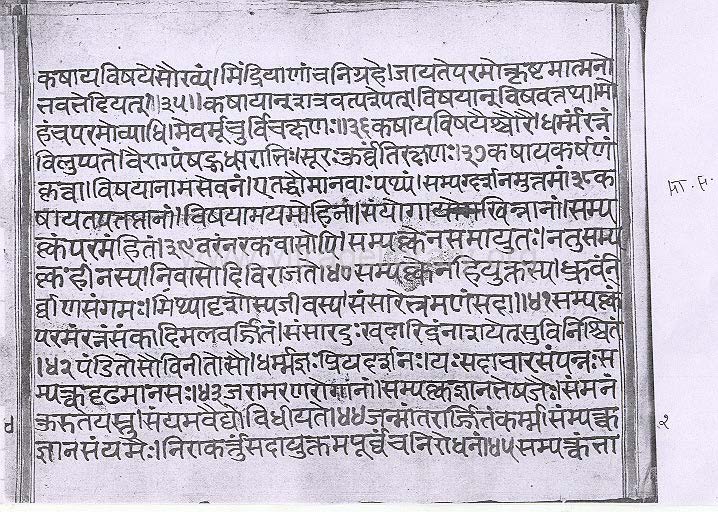 कषायविषयेसौख्यं।मिंद्रियाणांचनिग्रहे।जायतेपरमोत्कृष्टमात्मनो
नवत्तेदियत्।।३५।।कषायान्शत्रवत्पश्येत्।विषयान्विषवत्तथा।मो
हंचपरमोव्याधि।मेवमूंचुर्विचक्षणः।।३६कषायविषयैश्चौरै।धर्म्मरत्नं
विलुप्पते।वैराग्यषड्गधारात्तिः।सूरःकुर्वंतिरक्षणः।३७कषायकर्षणं
कृत्वा।विषयानामसेवनं।एतद्भोमानवाःपथ्यं।सम्पग्दर्शनमुत्तमं।३८क
षायतपतप्तानां।विषयामयमोहिनां।संयोगायखिन्नानां।सम्प
त्कंपरमंहितं।३९वरंनरकवासोणि।सम्पत्केनसमायुतः।नतुसम्प
त्कंहीनस्पानिवासोदिविराजते।४०सम्पत्केनहियुक्तस्प।ध्रुवंनि
र्व्वाणसंगमः।मिथ्यादृशोस्पजीवस्प।संसारेभ्रमणंसदा।।४१सम्पत्कं
परमंरत्नंसंकादिमलवर्जितं।संसारदुःखदारिद्रंनाशयेत्सुविनिश्चितं
।४२पंडितोसौविनीतोसौ।धर्म्मज्ञःप्रियदर्शनः।यःसदाचारसंपन्नःस
म्पक्तदृढमानसः।४३जरामरणरोगानां।सम्पत्कज्ञानभेषजैः।संमनं
कुरुतेयस्तु।संयमवैद्योविधीयते।४४जन्मांतरार्जितंकर्म्म।संम्पक्त
ज्ञानसंयमैः।निराकर्त्तुंसदायुक्तमपूर्व्वंचनिरोधनं।४५सम्पक्तंत्ता
४
२